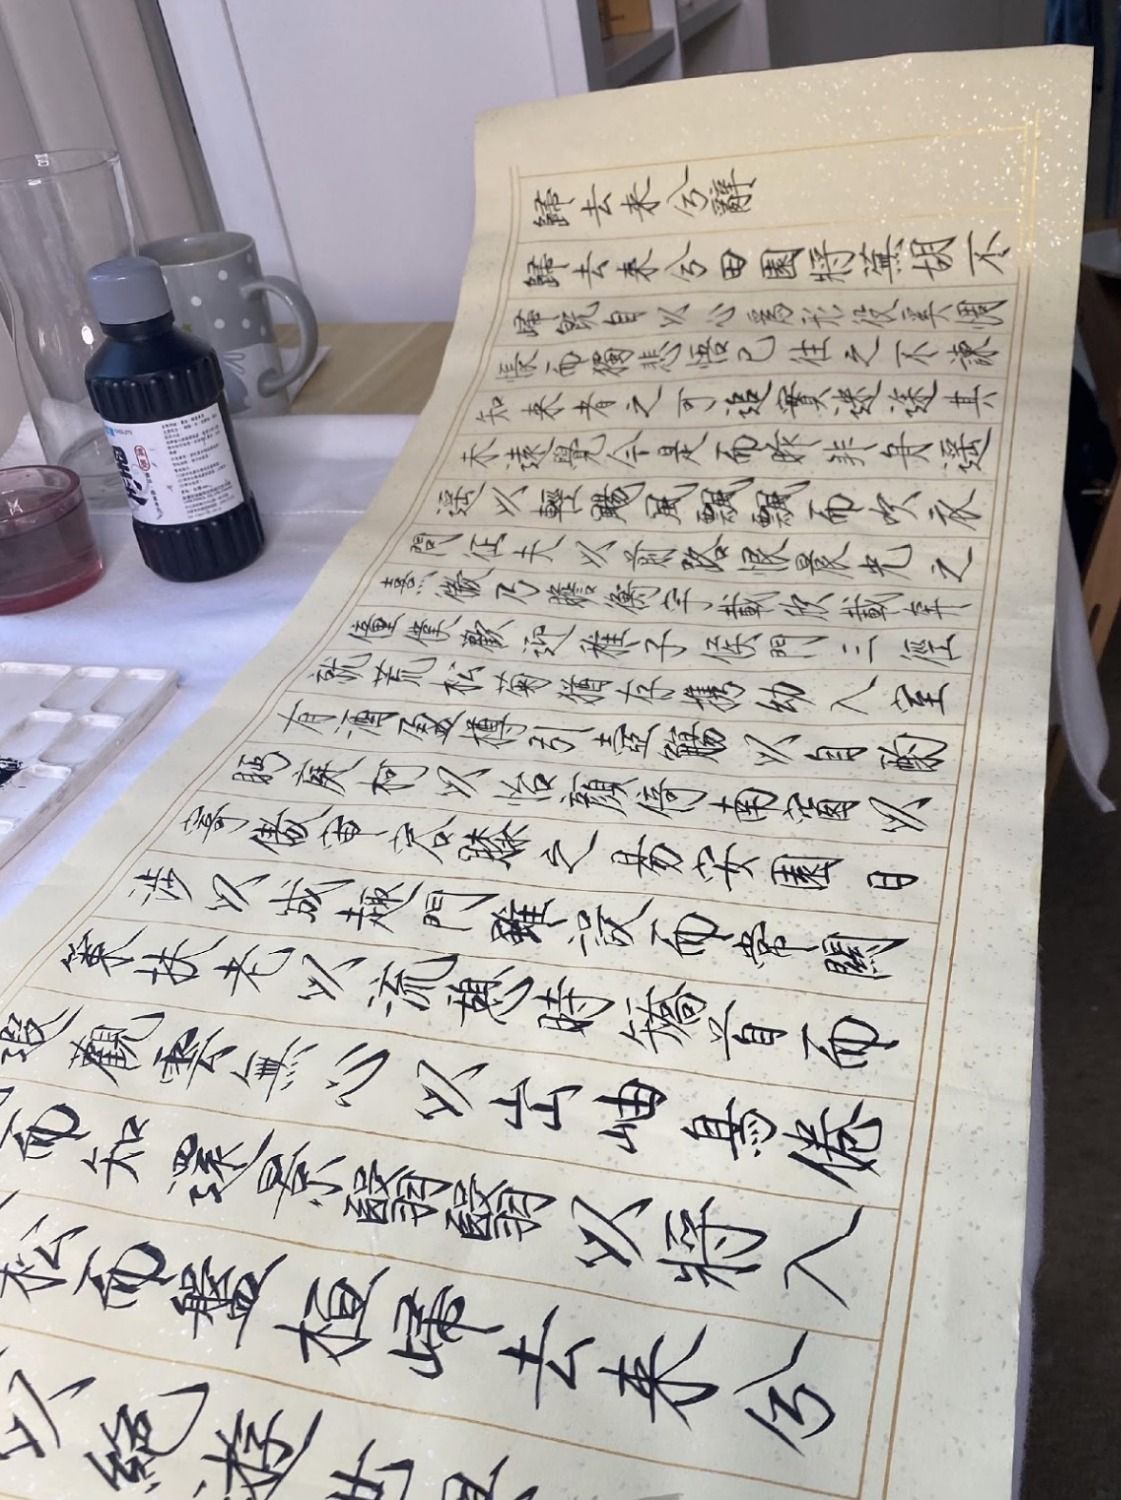 歸去来兮辭
歸去来兮田園將蕪胡不
歸既自以心為形役奚惆
悵而獨悲悟已往之不諫
知来者之可追實迷途其
未遠覺今是而昨非舟遥
遥以輕颺風飄飄而吹衣
問征夫以前路恨晨光之
熹微乃瞻衡宇載欣載奔
僮僕歡迎稚子候門三徑
就荒松菊猶存携幼入室
有酒盈樽引壺觴以自酌
眄庭柯以怡顔倚南窗以
寄傲審容膝之易安園日
涉以成趣門雖設而常關
策扶老以流憩時矯首而
遐觀雲無心以出岫鳥倦
而知還景翳翳以將入
松而盤桓歸去来兮
以絶遊
墨汁